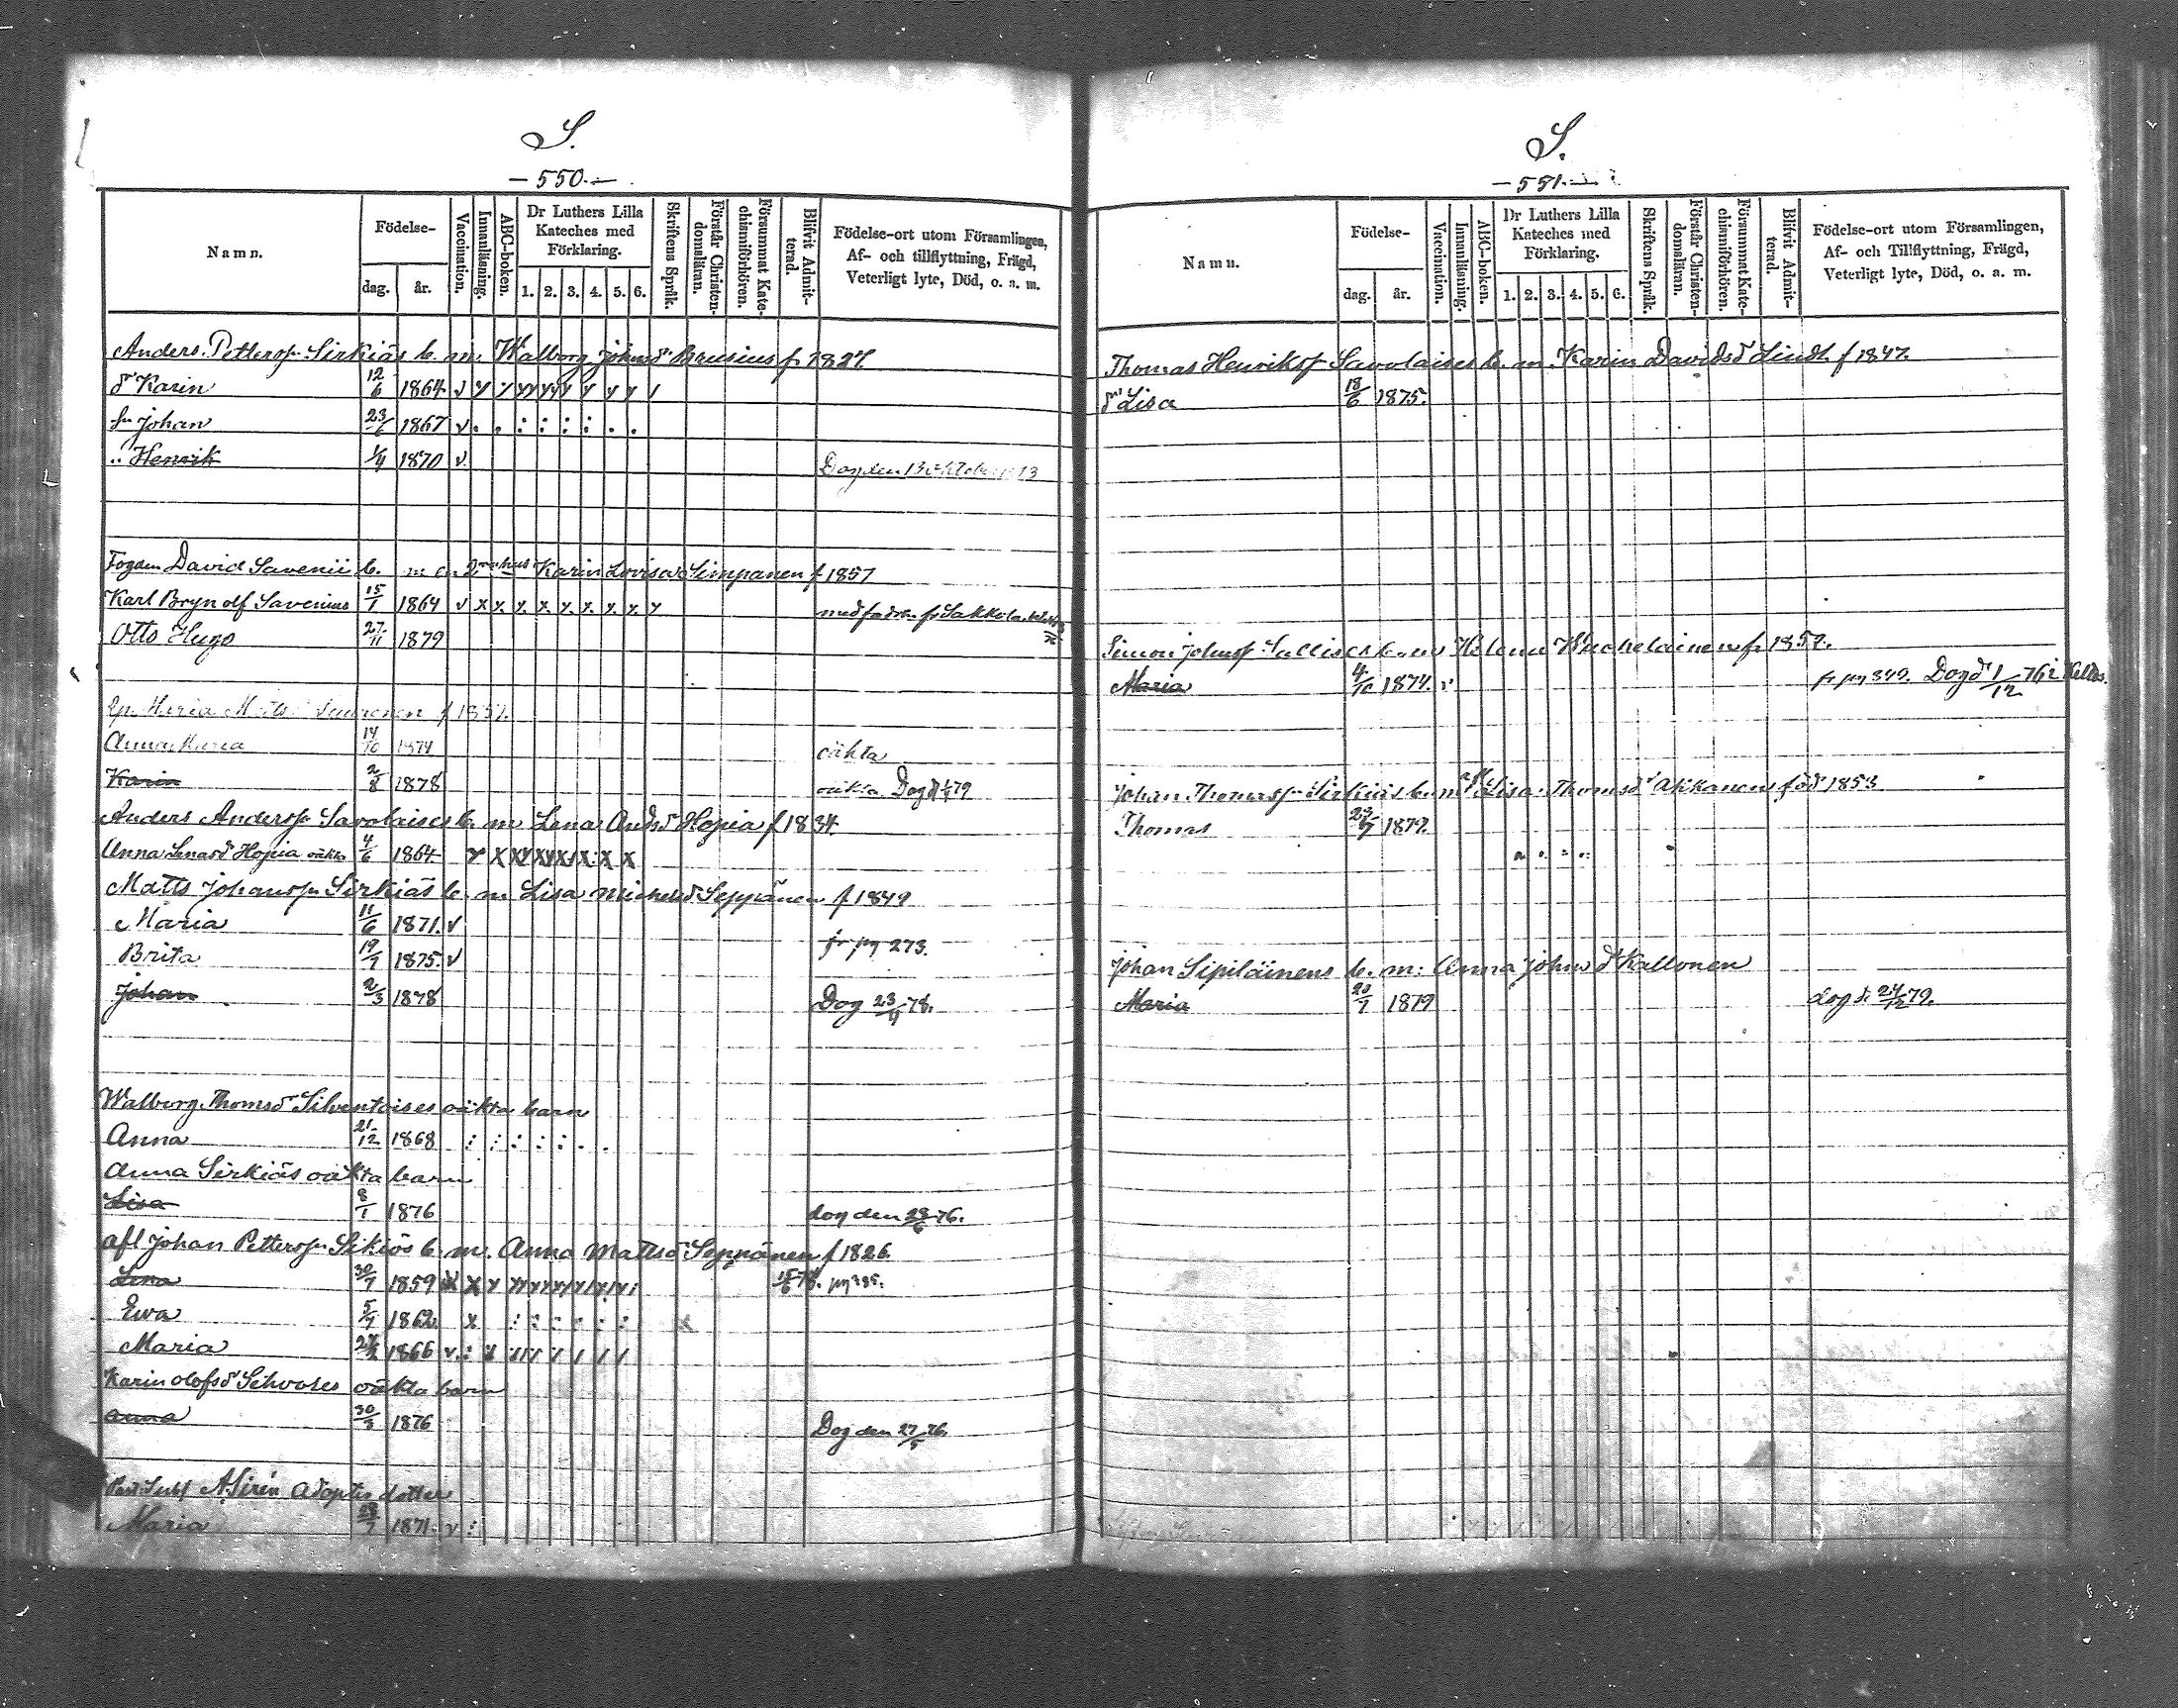 S.
— 550. —
Namn.
Födelse-
dag. år.
Vaccination.
Innanläsning.
ABC-boken.
Dr Luthers Lilla Kateches med Förklaring.
1. 2. 3. 4. 5. 6.
Skriftens Språk.
Förstår Christendomsläran.
Försummat Katechismiförhören.
Blifvit Admitterad.
Födelse-ort utom Församlingen, Af- och tillflyttning, Frägd, Veterligt lyte, Död, o. a. m.
Anders Petterssn Sirkiäs b. m. Walborg Johnsdr Brusius f. 1827
dr Karin 12/6 1864 v
sn Johan 23/6 1867 v
" Henrik 1/4 1870 v Dog den 13 oktober
Fogden David Savenii b. m. Karin Lovisa Simpanen f 1857
Karl Brynolf Savenius 15/1 1864 v x x x x x x x x med fr Sakkola
Otto Hugo 27/11 1879
Maria f 1857.
Anna Maria 14/10 1874 oäkta
Karin 2/8 1878 oäkta Dog 79
Anders Anderssn Savolaises b. m Lena Andsdr Hopia f 1834
Anna Lenasdr Hopia oäkta 4/6 1864
Matts Johanssn Sirkiäs b. m Lisa Michelsdr Seppänen f 1849
Maria 11/6 1871. v
Brita 19/7 1875. v fr pg 273.
Johan 2/3 1878 Dog 23/4 78.
Walborg Thomsdr Silventoises oäkta barn
Anna 21/12 1868
Anna Sirkiäs oäkta barn
Lisa 8/1 1876 dog den 76.
afl Johan Petterssn Sikiös b. m. Anna Mattsdr Seppänen f 1826.
Lena 30/7 1859 pg 385.
Ewa 5/7 1862 x
Maria 1866 v
Karin Olofsdr Sihvoles oäkta barn
Anna 30/3 1876 Dog den 27/5 76
A. Sirén adoptis dotter
Maria 1871 v
S.
— 551. —
Namn.
Födelse-
dag. år.
Vaccination.
Innanläsning.
ABC-boken.
Dr Luthers Lilla Kateches med Förklaring.
1. 2. 3. 4. 5. 6.
Skriftens Språk.
Förstår Christendomsläran.
Försummat Katechismiförhören.
Blifvit Admitterad.
Födelse-ort utom Församlingen, Af- och Tillflyttning, Frägd, Veterligt lyte, Död, o. a. m.
Thomas Henrikss Savolaises b. m. Karin Davidsdr Lindh f 1847.
dr Lisa 18/6 1875.
Simon Johnss b. m Helena f. 1857.
Maria 4/10 1874. v fr pg 349. Dog dr 1/12 76 i
Johan Thomassn Sirkiäs b. m Lisa Thomsdr Ahkanen född 1853
Thomas 1879.
Johan Sipiläinens b. m: Anna Johnsdr Kallonen
Maria 20/7 1879 dog d. 24/12 79.